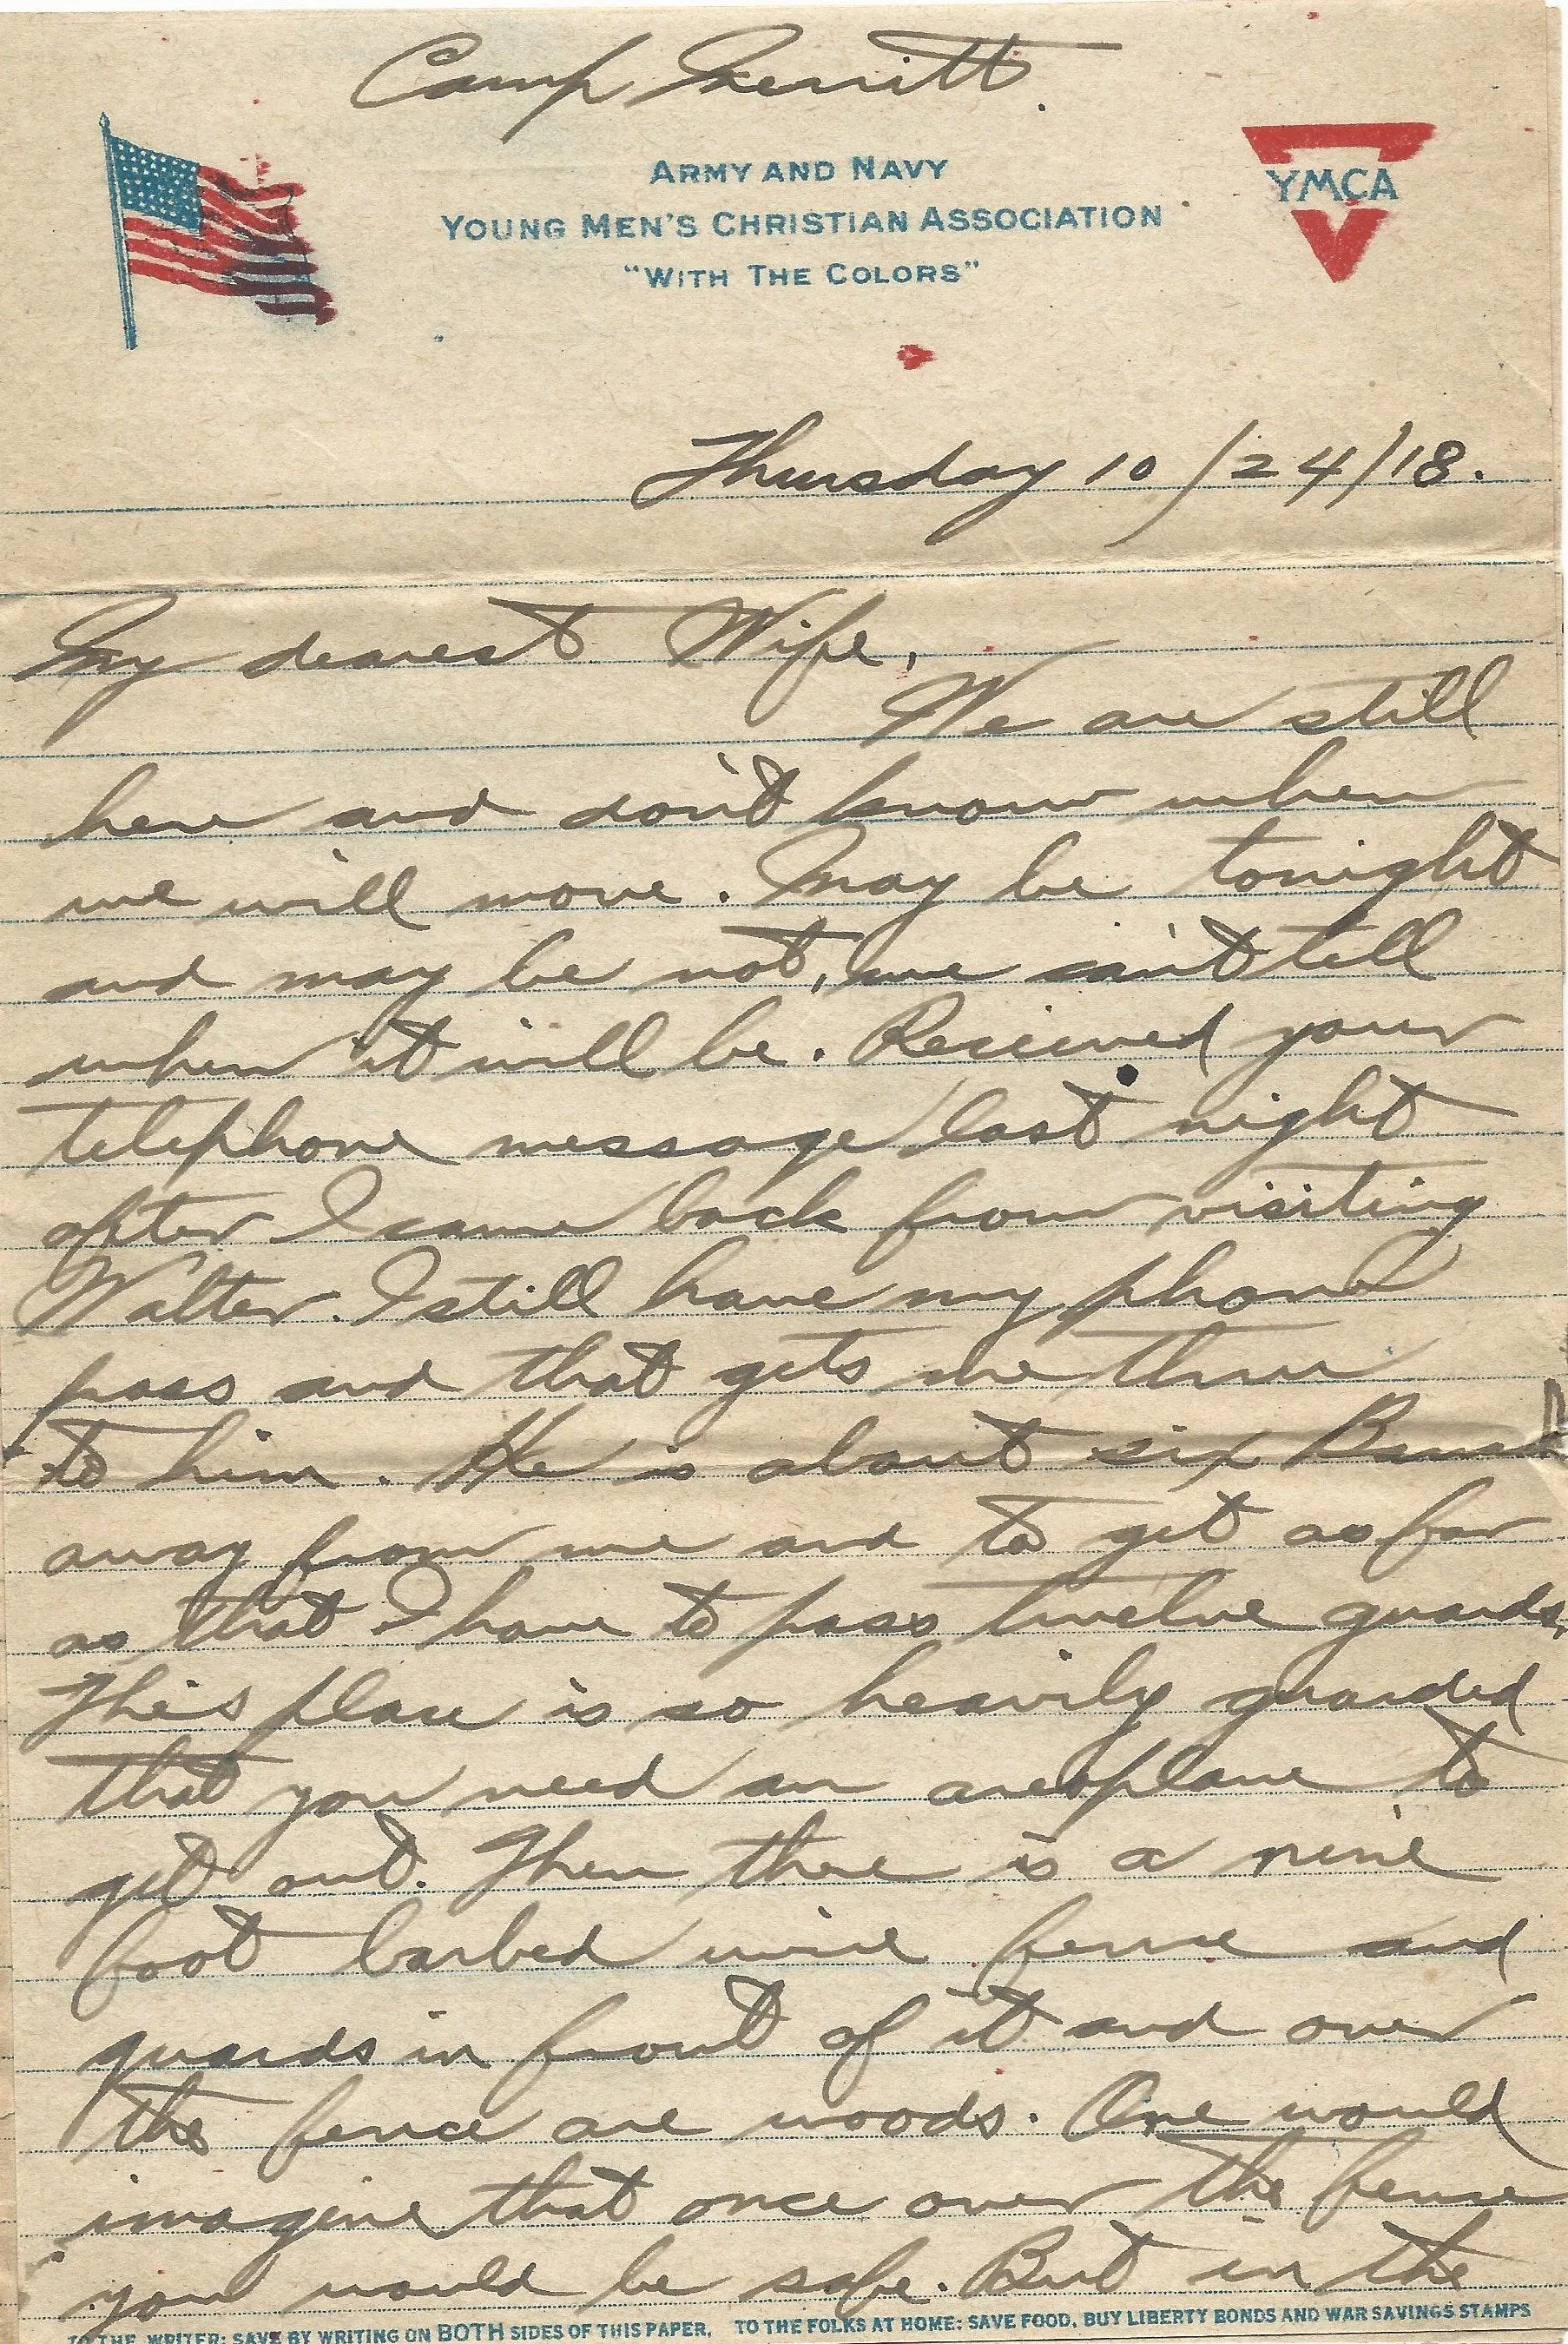 Camp Merritt.
ARMY AND NAVY
YOUNG MEN'S CHRISTIAN ASSOCIATION
"WITH THE COLORS"
YMCA
Thursday 10/24/18.
My dearest Wife,
We are still
here and don't know when
we will move. May be tonight
and may be not, we can't tell
when it will be. Recieved your
telephone message last night
after I came back from visiting
Walter. I still have my phone
pass and that gets me thru
to him. He is about six
away from me and to get as far
as that I have to pass twelve guards.
This place is so heavily guarded
that you need an areoplane to
get out. Then there is a nine
foot barbed wire fence and
guards in front of it and over
the fence are woods. One would
imagine that once over the fence
you would be safe. But in the
TO THE WRITER: SAVE BY WRITING ON BOTH SIDES OF THIS PAPER. TO THE FOLKS AT HOME: SAVE FOOD, BUY LIBERTY BONDS AND WAR SAVINGS STAMPS